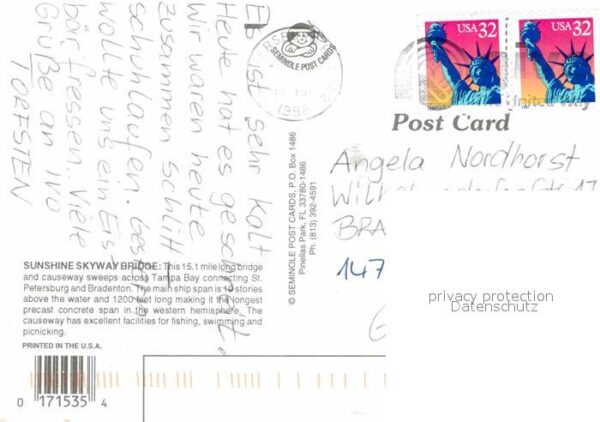 Es ist sehr kalt
Heute hat es geschneit.
Wir waren heute
zusammen Schlitt
schuhlaufen. Gestern
wollte uns ein Eis-
bär fressen. Viele
Grüße an IVO
TORSTEN
SEMINOLE POST CARDS
1996
USA 32
USA 32
United Way
Post Card
Angela Nordhorst
17
BRA
147
G
privacy protection
Datenschutz
© SEMINOLE POST CARDS, P.O. Box 1486
Pinellas Park, FL 33780-1486
Ph. (813) 392-4591
SUNSHINE SKYWAY BRIDGE: This 15.1 mile long bridge
and causeway sweeps across Tampa Bay connecting St.
Petersburg and Bradenton. The main ship span is 19 stories
above the water and 1200 feet long making it the longest
precast concrete span in the western hemisphere. The
causeway has excellent facilities for fishing, swimming and
picnicking.
PRINTED IN THE U.S.A.
0 171535 4